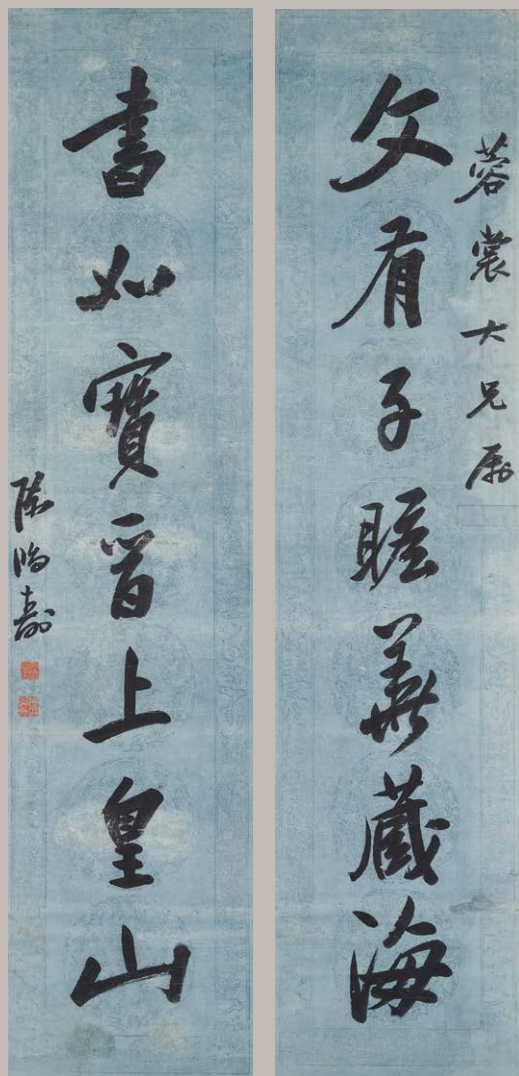 蓉裳大兄屬
文有子瞻華藏海
書如寶晉上皇山
陳鴻壽